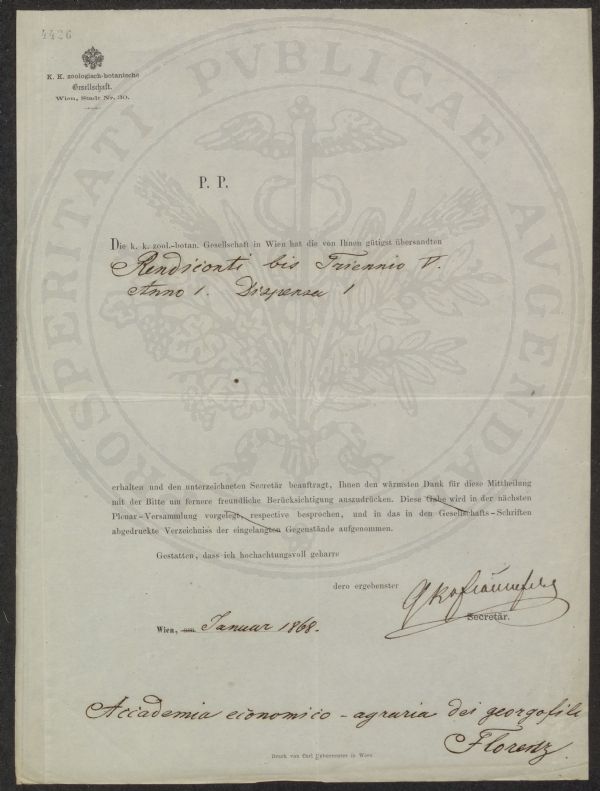 4426
K. K. zoologisch-botanische
Gesellschaft.
Wien, Stadt Nr. 30.
PROSPERITATI PVBLICAE AVGENDAE
P. P.
Die k. k. zool.-botan. Gesellschaft in Wien hat die von Ihnen gütigst übersandten
Rendiconti bis Triennio V.
Anno 1. Dispensa 1
erhalten und den unterzeichneten Secretär beauftragt, Ihnen den wärmsten Dank für diese Mittheilung
mit der Bitte um fernere freundliche Berücksichtigung auszudrücken. Diese Gabe wird in der nächsten
Plenar-Versammlung vorgelegt, respective besprochen, und in das in den Gesellschafts-Schriften
abgedruckte Verzeichniss der eingelangten Gegenstände aufgenommen.
Gestatten, dass ich hochachtungsvoll geharre
dero ergebenster
Secretär.
Wien, am Januar 1868.
Accademia economico-agraria dei georgofili
Florenz
Druck von Carl Ueberreuter in Wien.